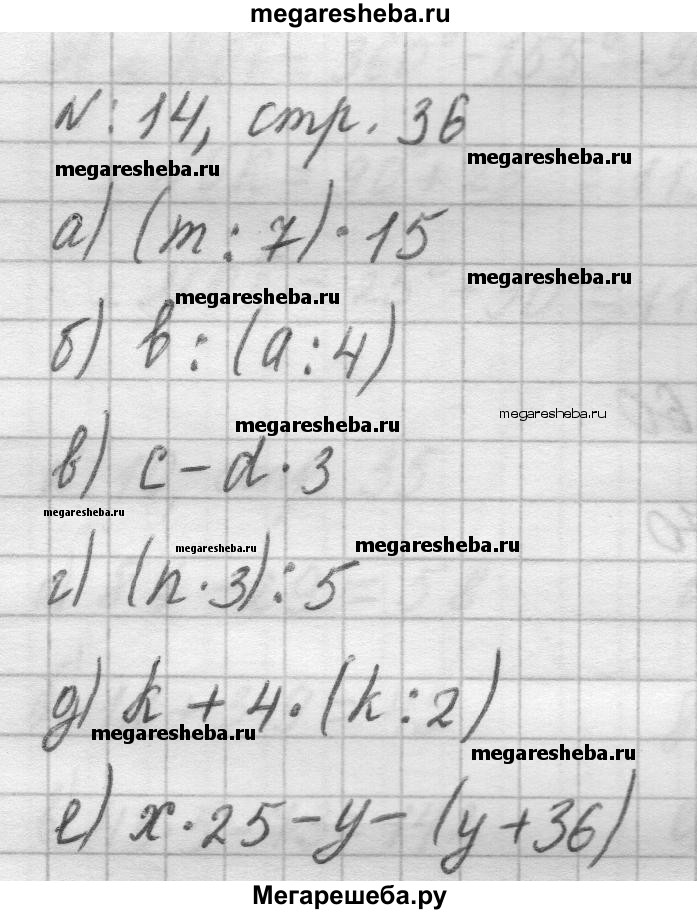 megaresheba.ru
N: 14, стр. 36
megaresheba.ru
megaresheba.ru
а) (m : 7) · 15
megaresheba.ru
megaresheba.ru
б) b : (a : 4)
megaresheba.ru
megaresheba.ru
в) c - d · 3
megaresheba.ru
megaresheba.ru
megaresheba.ru
г) (n · 3) : 5
д) k + 4 · (k : 2)
megaresheba.ru
megaresheba.ru
е) x · 25 - y - (y + 36)
Мегарешеба.ру